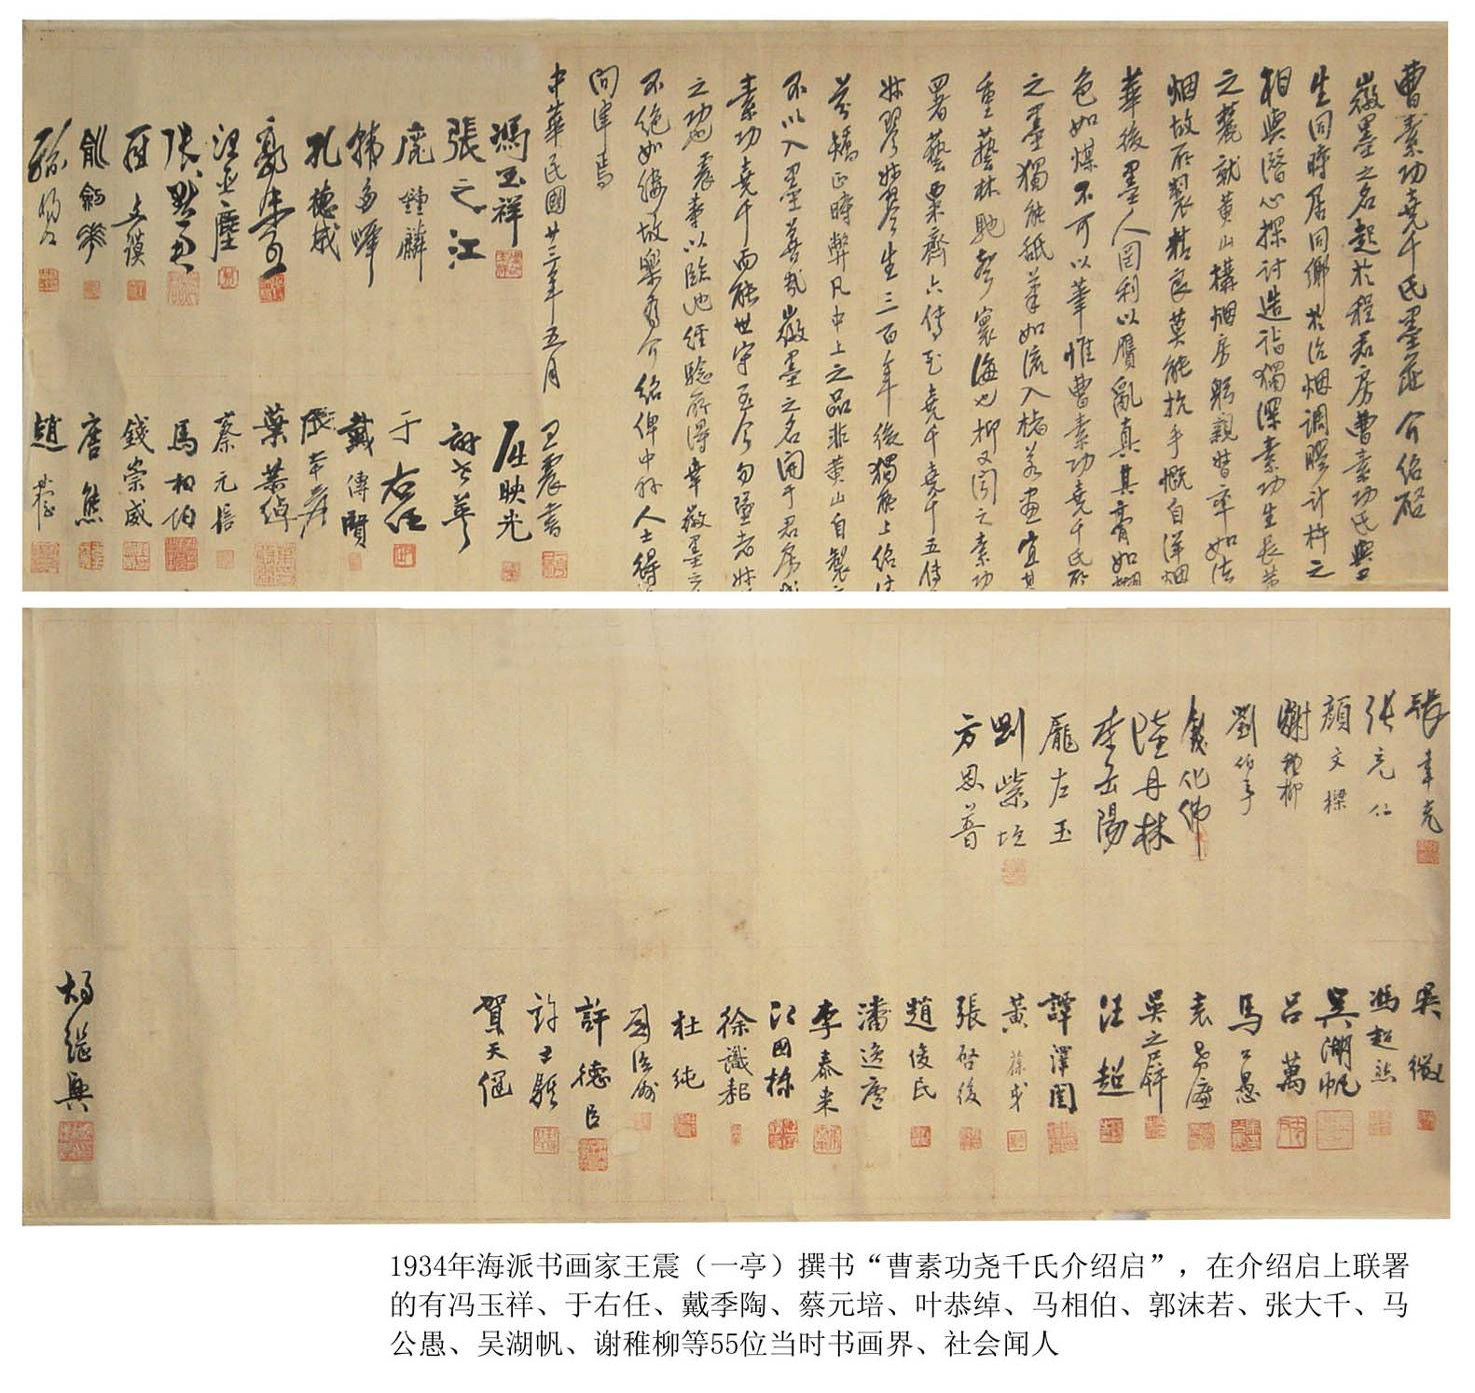 曹素功堯千氏墨莊介紹啓
徽墨之名起於程君房曹素功氏與
生同時居同鄉於治烟調膠計杵之
相與潛心探討造詣獨深素功生長黄
之麓就黄山構烟房躬親督率如法
烟故所製精良莫能抗手慨自洋烟
華後墨人因利以贋亂真其膏如糊
色如煤不可以筆惟曹素功堯千氏所
之墨獨能舐筆如流入楮若畫宜其
重藝林馳聲寰海也抑又聞之素功
署藝粟齋六傳至堯千堯千五傳
生三百年後獨能上紹
矯正時弊凡中上之品非黄山自製
不以入墨善哉徽墨之名開于君房
素功堯千而能世守至今勿墜者
之功也震素以臨池經驗所得
不絕如縷故樂為介紹俾中外人士得
問津焉
中華民國廿三年五月
王震書
馮玉祥
張之江
龐鐘麟
韓多峰
孔德成
屈映光
于右任
戴傳賢
張大千
葉恭綽
蔡元培
馬相伯
錢崇威
唐熊
趙
俞劍華
張韋光
張充仁
顏文樑
謝稚柳
劉伯年
錢化佛
陸丹林
李岳陽
龐左玉
劉紫垣
方思普
吳徵
馮超然
吳湖帆
呂萬
馬公愚
吳之屏
汪超
譚澤闓
黃葆戉
張啓後
趙俊民
潘逸廬
李泰來
江國棟
徐識耜
杜純
許德臣
許士騏
賀天健
楊繼興
1934年海派书画家王震（一亭）撰书“曹素功尧千氏介绍启”，在介绍启上联署
的有冯玉祥、于右任、戴季陶、蔡元培、叶恭绰、马相伯、郭沫若、张大千、马
公愚、吴湖帆、谢稚柳等55位当时书画界、社会闻人